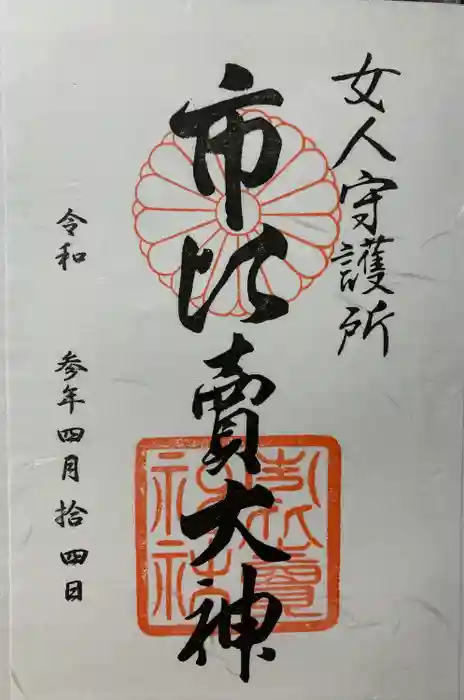 女人守護所
市比賣大神
令和 参年四月拾四日